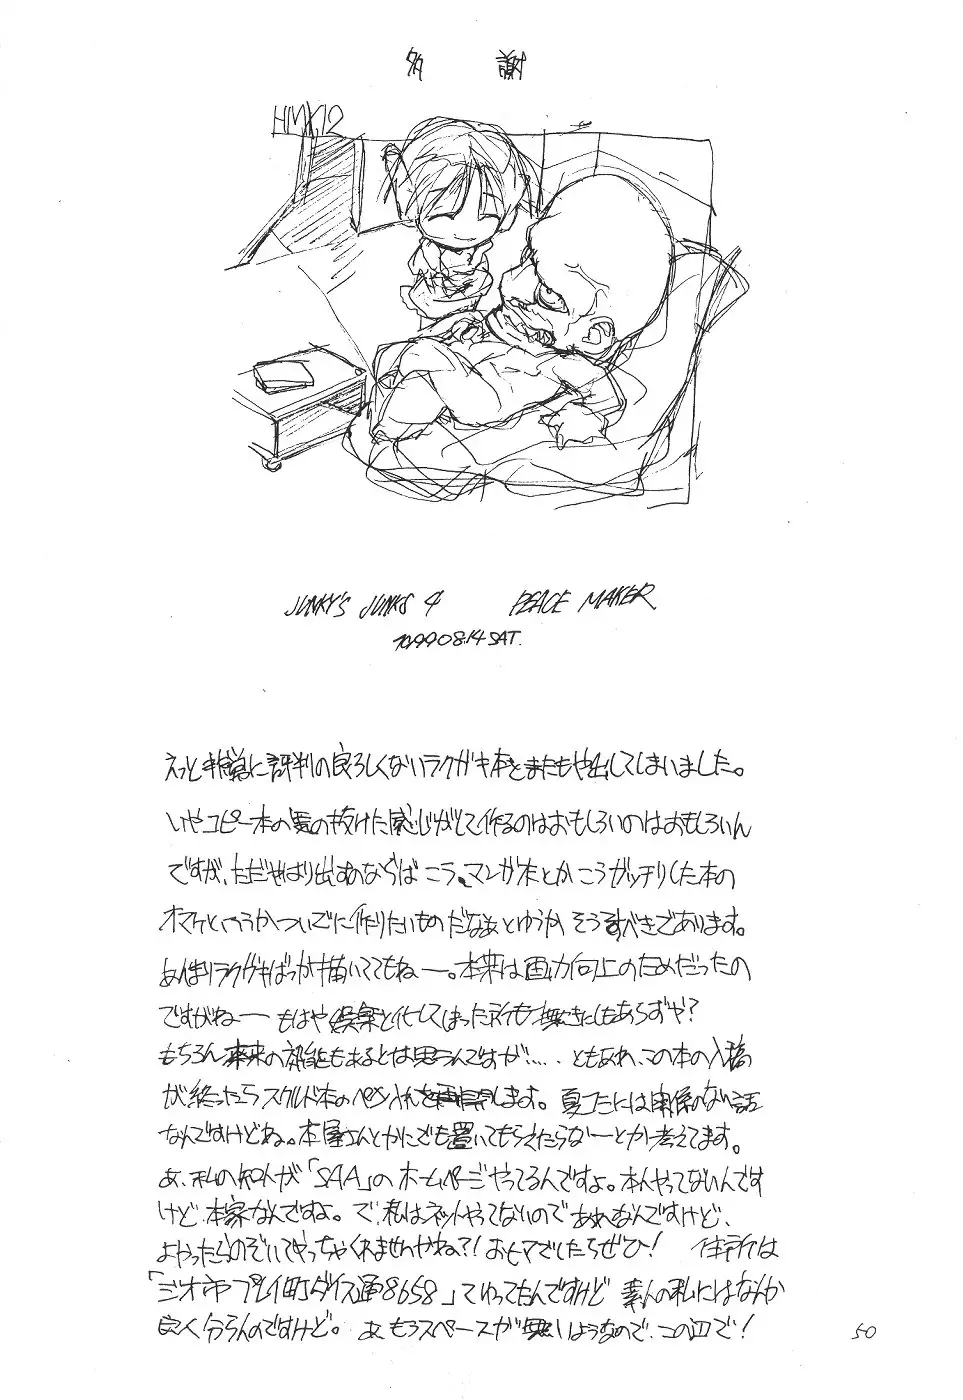 多 謝
HMX12
JUNKY'S JUNKS 4 PEACE MAKER
1999 08.14 SAT.
えっと 非常に評判の良ろしくないラクガキ本をまたもや出してしまいました。
いやコピー本の気の抜けた感じがして作るのはおもしろいのはおもしろいん
ですが、ただやはり出すのならば こう、マンガ本とか こうガッチリした本の
オマケというかついでに作りたいものだなぁとゆうか そうすべきであります。
あんまりラクガキばっか描いててもねー。本来は画力向上のためだったの
ですがねー もはや娯楽と化してしまった 無きにしもあらずや?
もちろん本来の効能もあるとは思うんですが‥‥. ともあれ、この本の入稿
が終ったらスクルド本のペン入れを再開します。夏コミには関係のない話
なんですけどね。本屋さんとかにでも置いてもらえたらなーとか考えてます。
あ、私の知人が「SAA」のホームページやってるんですよ。本人やってないんです
けど 本家なんですよ。で、私はネットやってないので あれなんですけど、
よかったらのぞいてやっちゃくれませんかね?! おヒマでしたらぜひ! 住所は
「ジオ市プレイ町ダイス通8658」ていってたんですけど 素人の私にはなんか
良く分らんのですけど。 あ、もうスペースが無いようなので、この辺で!
50